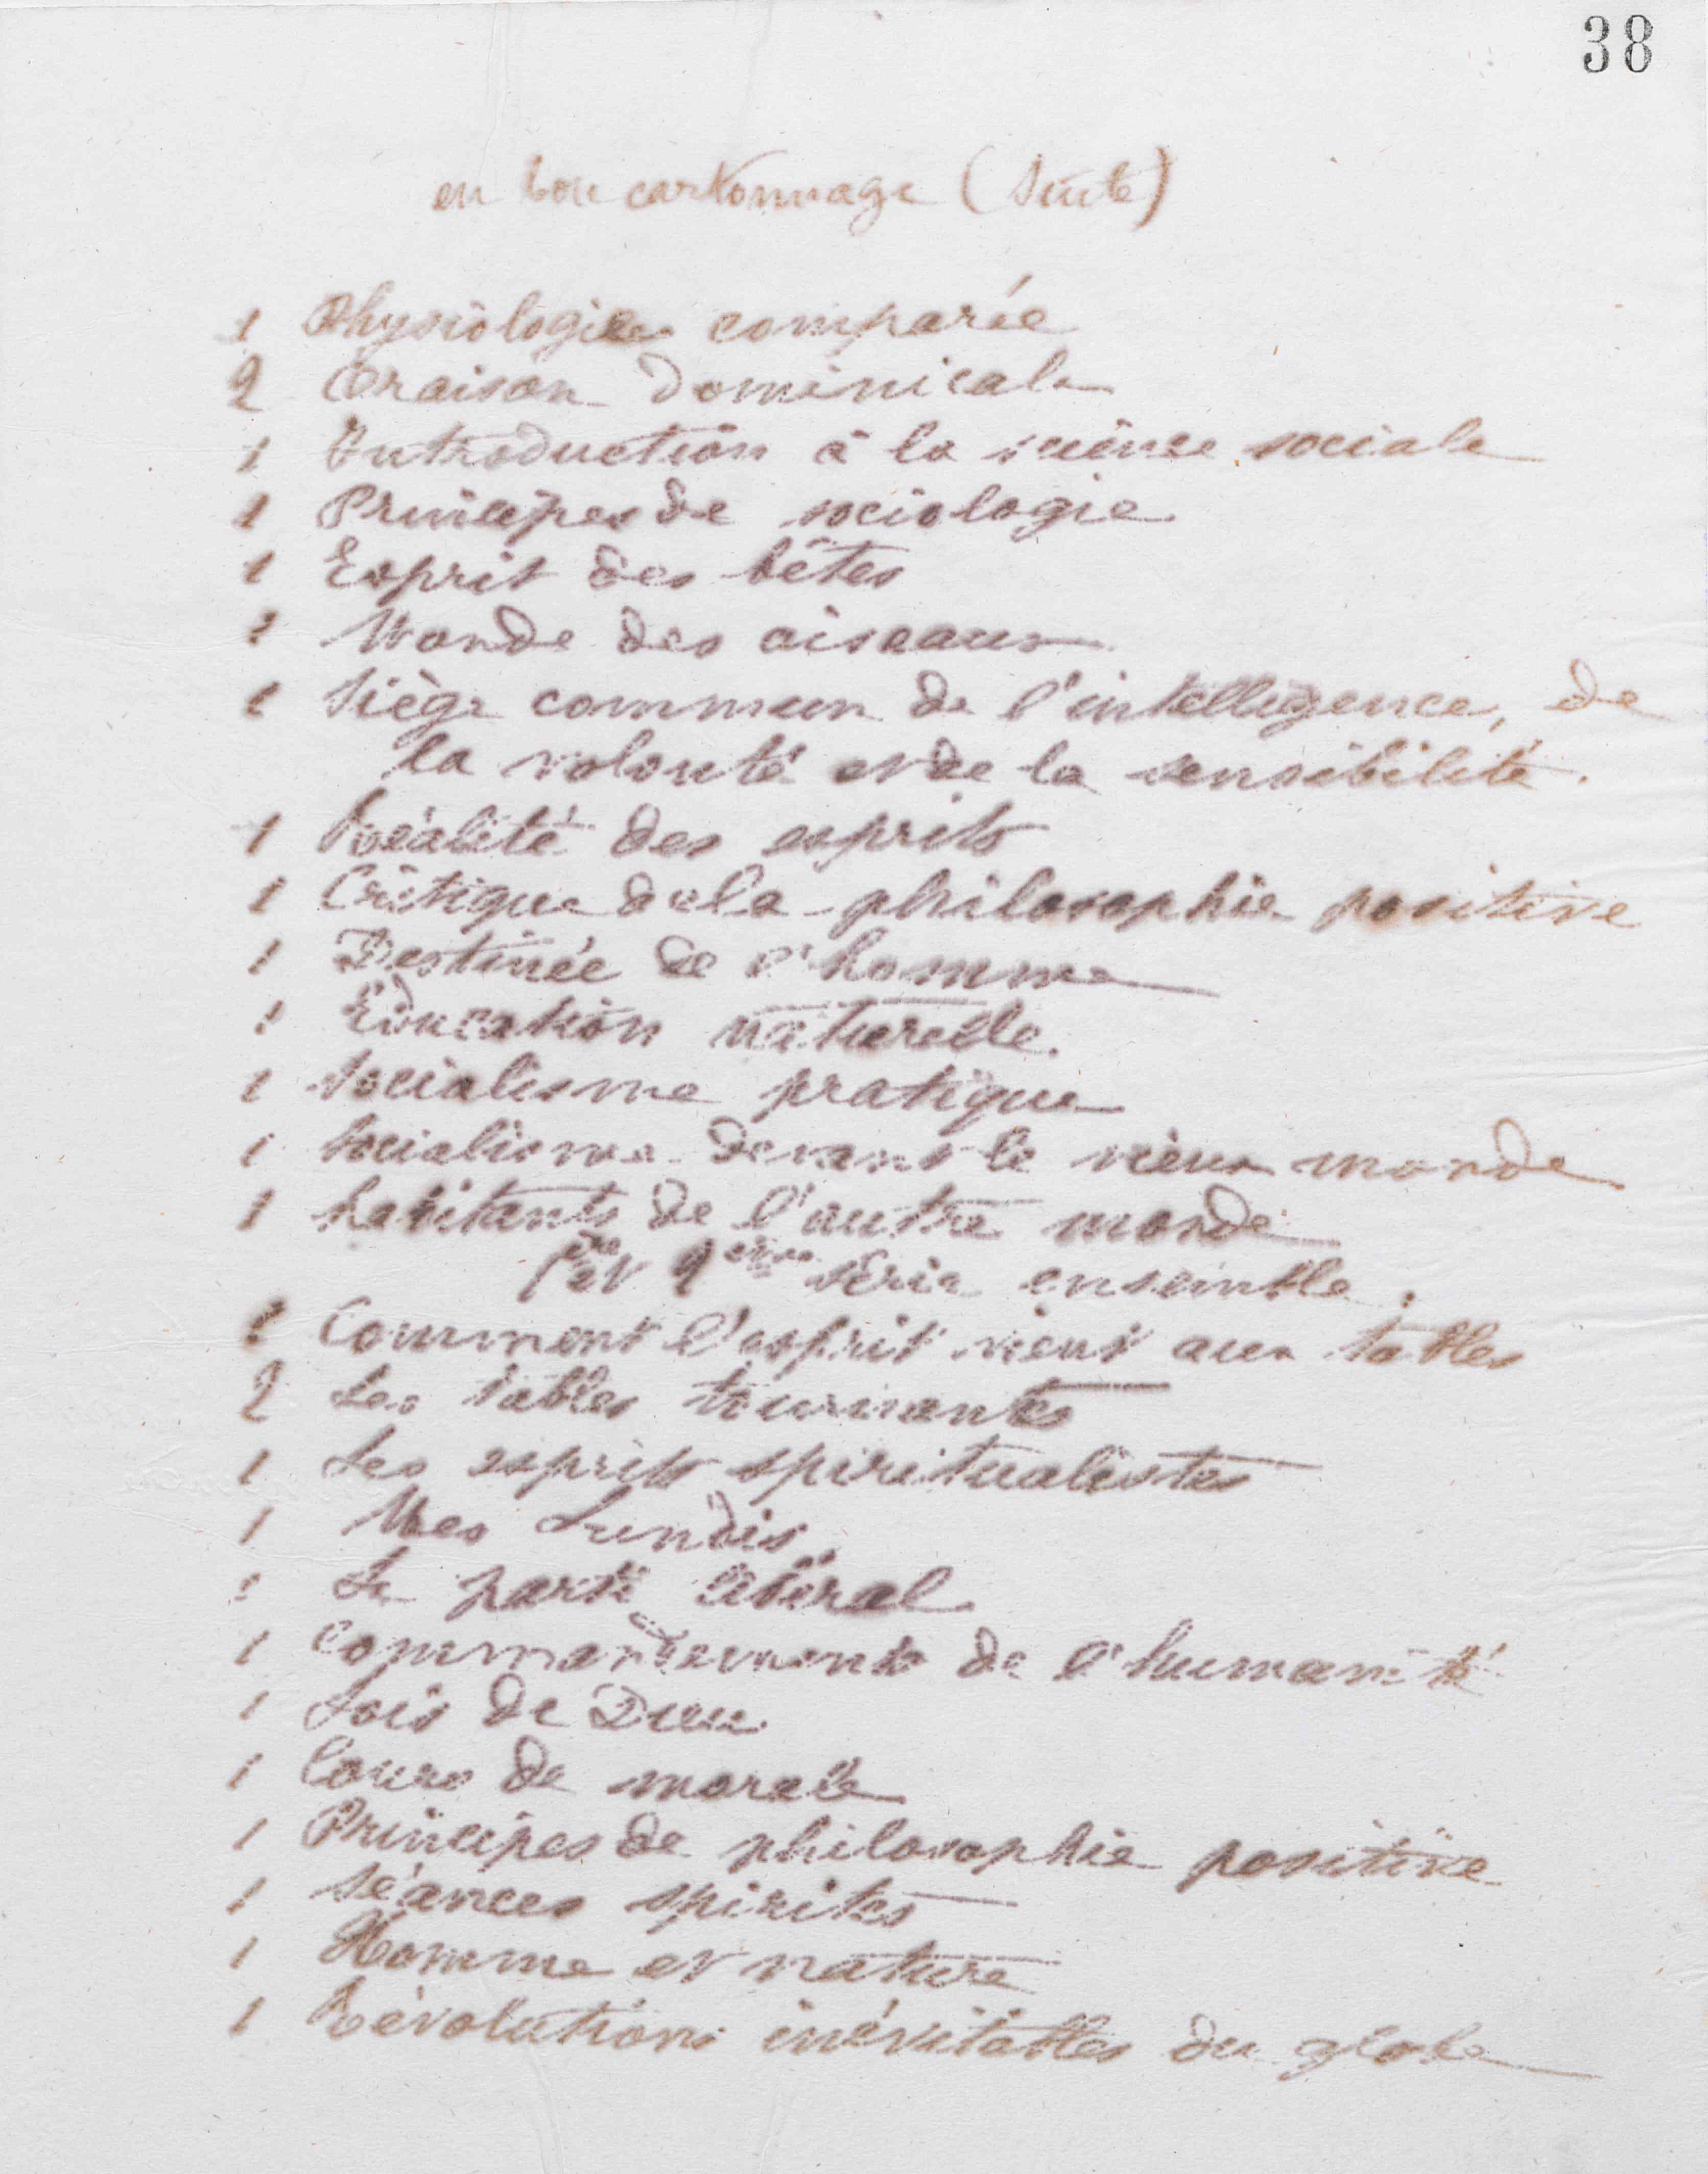 38
en bon cartonnage (Suite)
1 Physiologie comparée
2 Oraison Dominicale
1 Introduction à la science sociale
1 Principes de sociologie
1 Esprit des bêtes
1 Monde des oiseaux
1 Siège commun de l'intelligence, de
la volonté et de la sensibilité.
1 Réalité des esprits
1 Critique de la philosophie positive
1 Destinée de l'homme
1 Education naturelle.
1 Socialisme pratique
1 Socialisme devant le vieux monde
1 habitants de l'autre monde
1ère et 2ème série ensemble.
1 Comment l'esprit vient aux tables
2 Les tables tournantes
1 Les esprits spiritualistes
1 Mes Lundis
1 Le parti libéral
1 Commandements de l'humanité
1 Lois de Dieu
1 Cours de morale
1 Principes de philosophie positive
1 Séances spirites
1 Homme et nature
1 Révolutions inévitables du globe